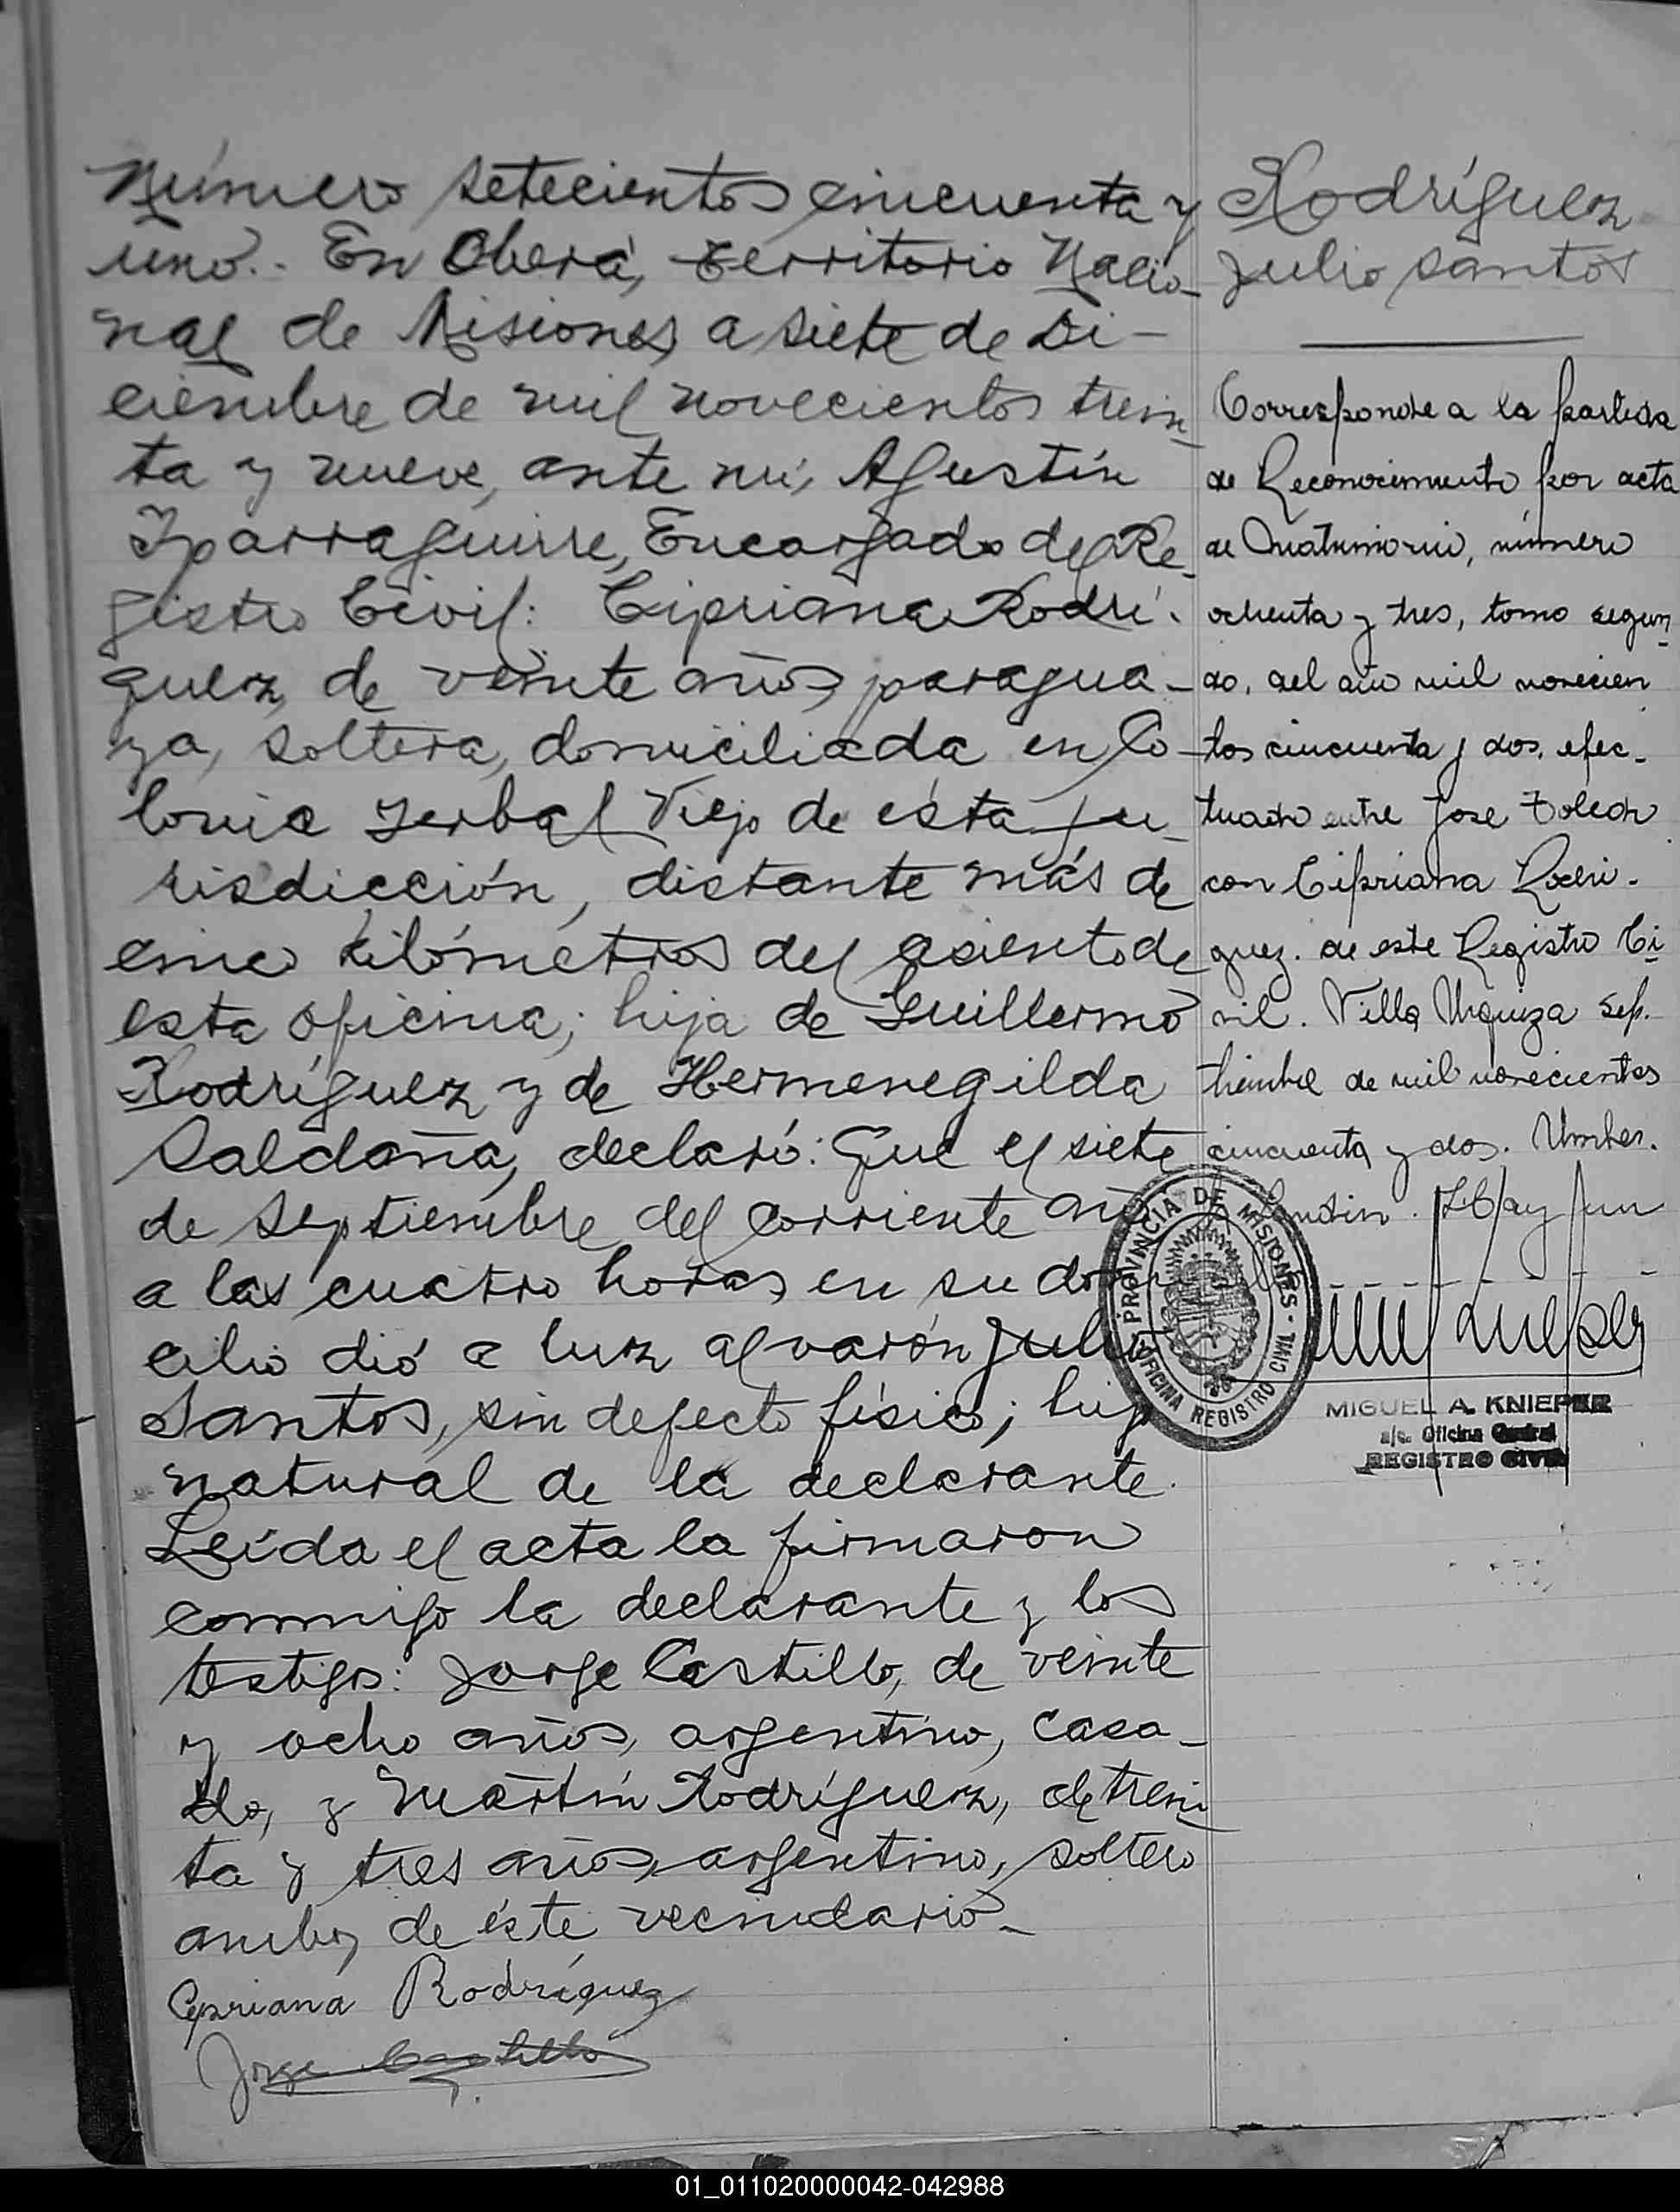 Número setecientos cincuenta y
uno.- En Oberá, Territorio Nacio-
nal de Misiones, a siete de Di-
ciembre de mil novecientos trein-
ta y nueve, ante mí, Agustín
Iparraguirre, Encargado del Re-
gistro Civil: Cipriana Rodrí-
guez, de veinte años, paragua-
ya, soltera, domiciliada en Co-
lonia Yerbal Viejo de ésta ju-
risdicción, distante más de
cinco kilómetros del asiento de
esta oficina; hija de Guillermo
Rodríguez y de Hermenegilda
Saldaña, declaró: Que el siete
de Septiembre del corriente año
a las cuatro horas en su domi-
cilio dió a luz al varón Julio
Santos, sin defecto físico; hijo
natural de la declarante.
Leída el acta la firmaron
conmigo la declarante y los
testigos: Jorge Castillo, de veinte
y ocho años, argentino, casa-
do, y Martín Rodríguez, de trein-
ta y tres años, argentino, soltero
ambos de éste vecindario.-
Cipriana Rodríguez
Jorge Castillo
Rodríguez
Julio Santos
Corresponde a la partida
de Reconocimiento por acta
de Matrimonio, número
ochenta y tres, tomo segun-
do, del año mil novecien
tos cincuenta y dos, efec-
tuado entre José Toledo
con Cipriana Rodrí-
guez. de este Registro Ci-
vil. Villa Urquiza Sep-
tiembre de mil novecientos
cincuenta y dos.
Hay un
PROVINCIA DE MISIONES - OFICINA REGISTRO CIVIL
MIGUEL A. KNIEPER
a/c. Oficina Central
REGISTRO CIVIL
01_011020000042-042988